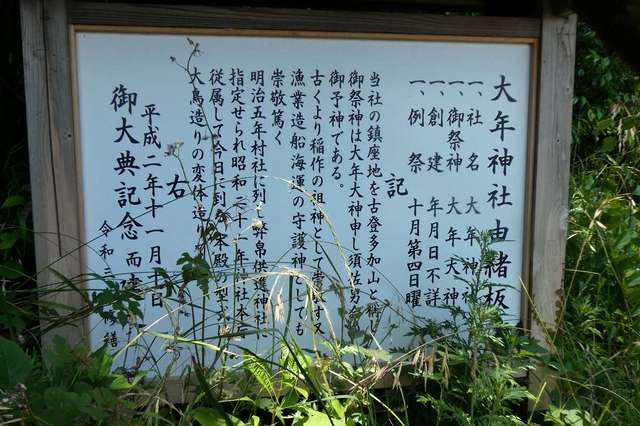 大年神社由緒板
一、社名 大年神社
一、御祭神 大年大神
一、創建 年月日不詳
一、例祭 十月第四日曜
記
当社の鎮座地を古登多加山と称し
御祭神は大年大神申し須佐男命
御予神である。
古くより稲作の祖神として崇敬 又
漁業造船海運の守護神としても
崇敬篤く
明治五年村社に列し幣帛供進神社
指定せられ昭和二十一年神社本庁
従属して今日に到る 本殿の型
大鳥造りの変体造り
右
平成二年十一月 日
御大典記念 而建
令和三